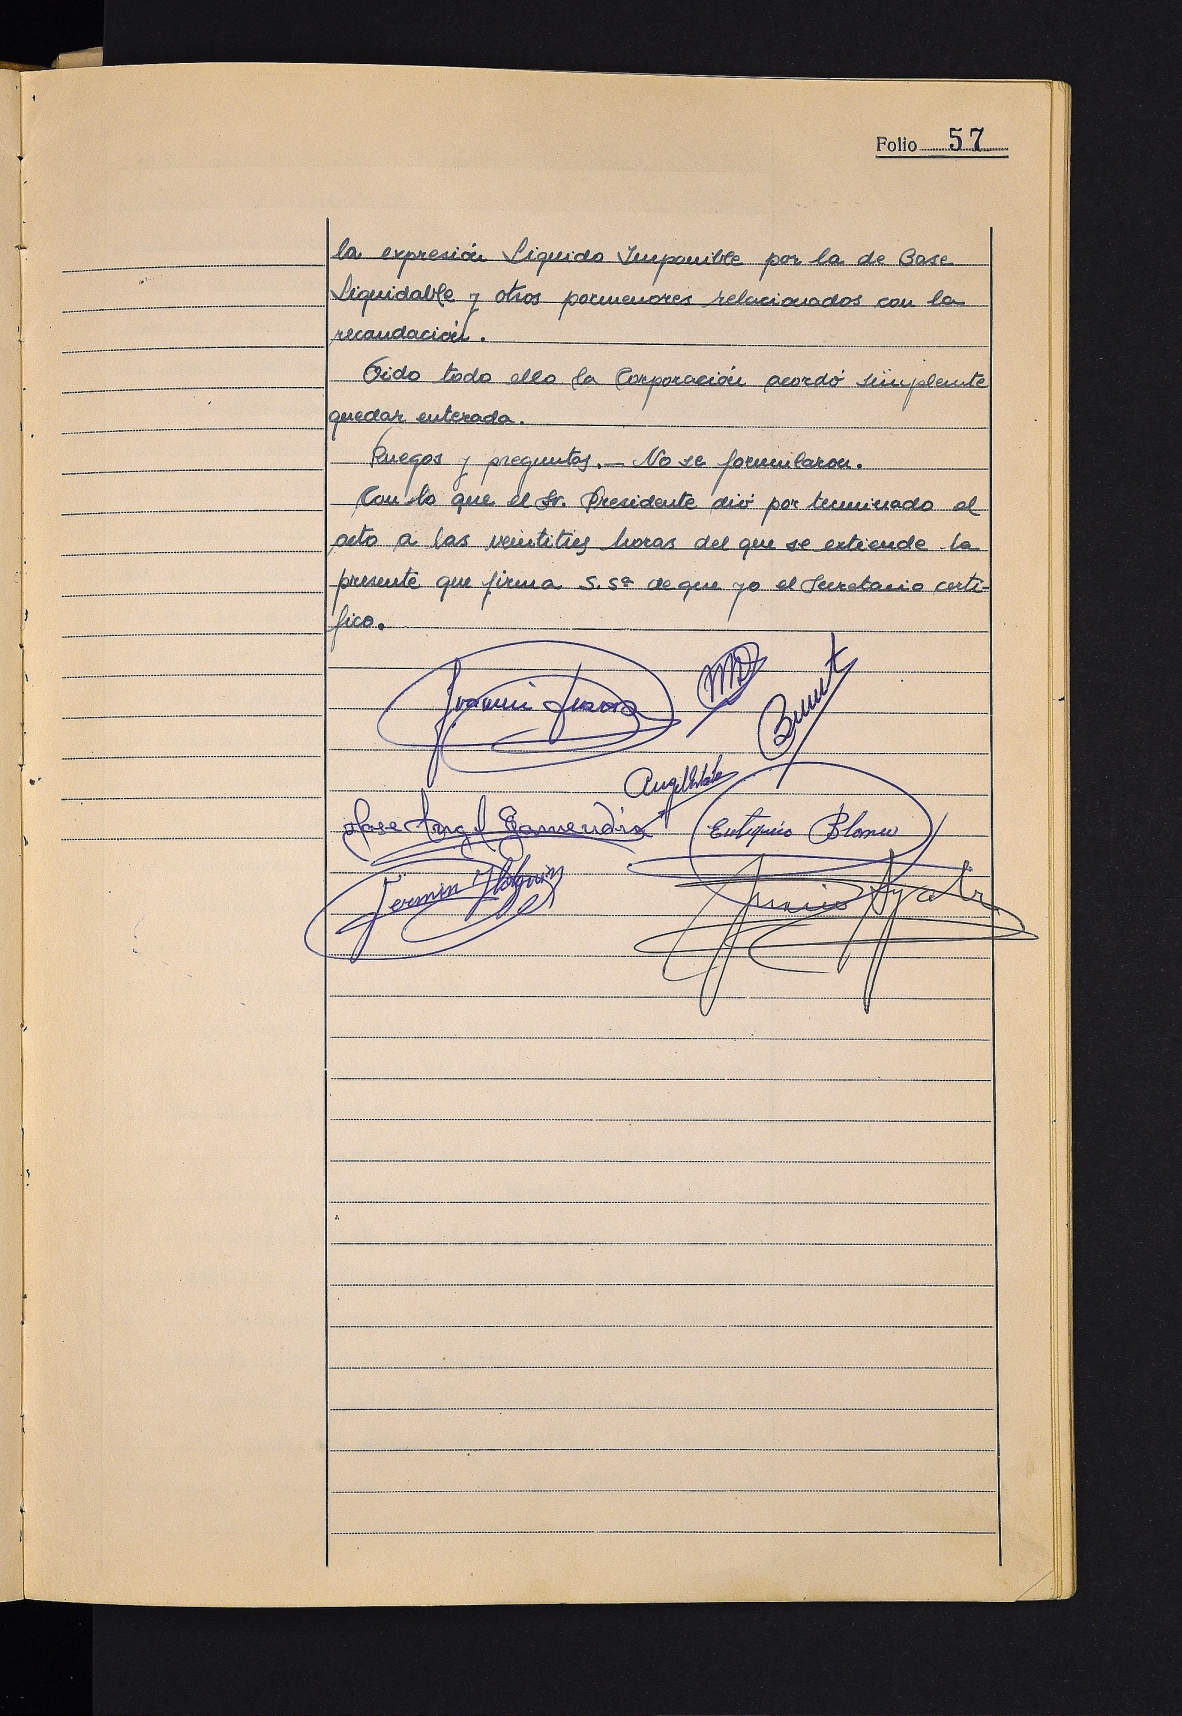 Folio 57
la expresión Líquido Imponible por la de Base
Liquidable y otros pormenores relacionados con la
recaudación.
Oido todo ello la Corporación acordó simplemente
quedar enterada.
Ruegos y preguntas.— No se formularon.
Con lo que el Sr. Presidente dió por terminado el
acto a las veintitres horas del que se extiende la
presente que firma S. Sª de que yo el Secretario certi-
fico.
José Angel Garmendia
Eutiquio Blanco
Fermin